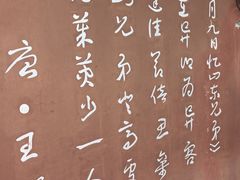 月九日忆山东兄弟》
在异乡为异客
逢佳节倍思亲
兄弟登高处
茱萸少一人
唐·王